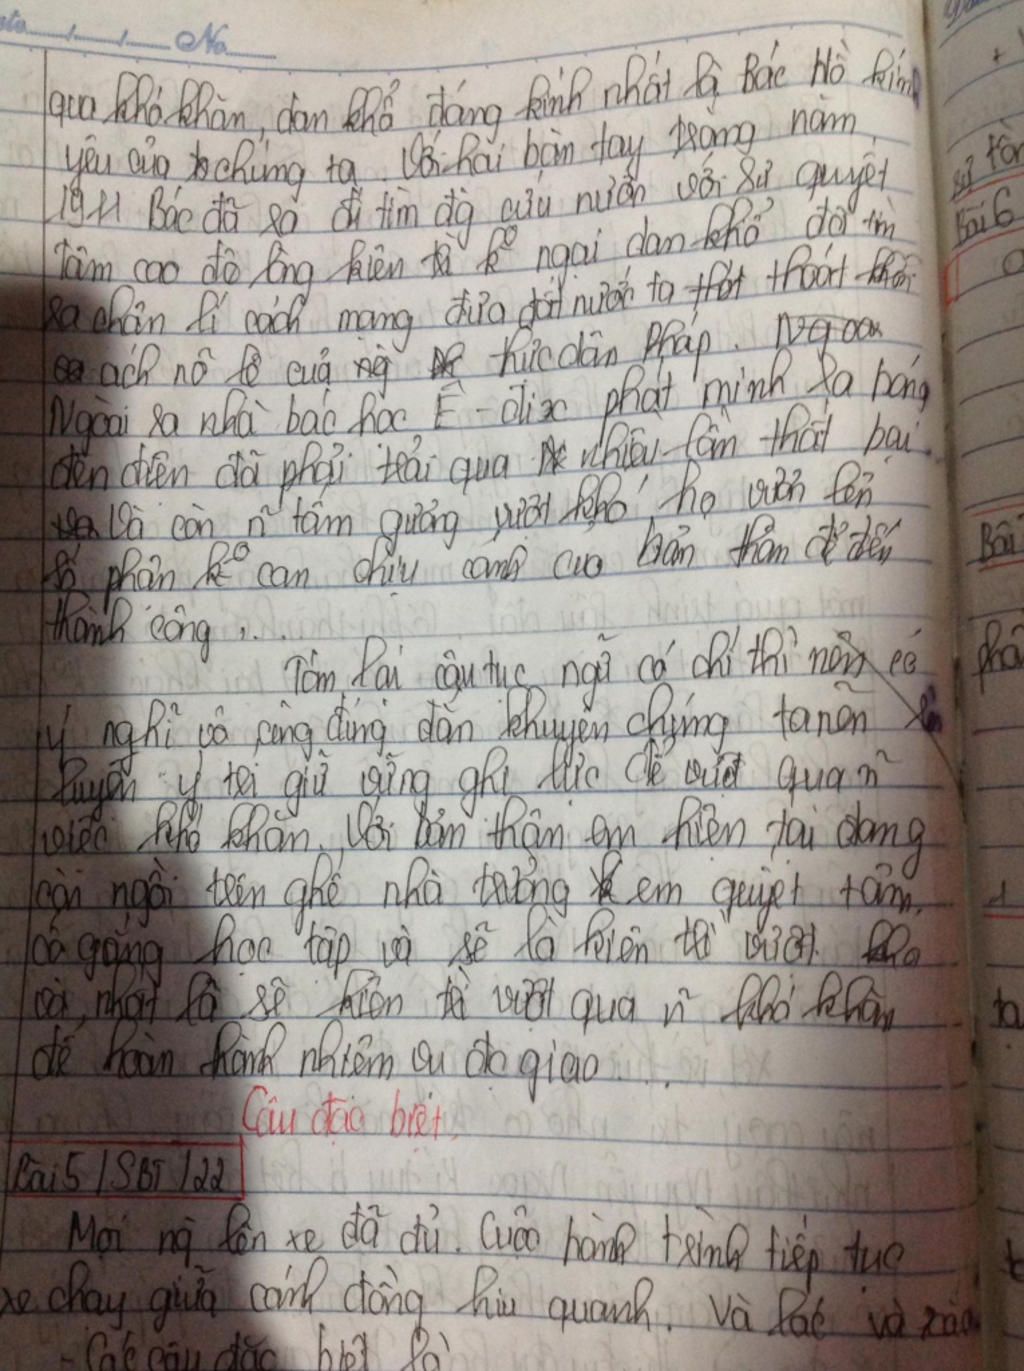 No
qua khó khăn, dan khổ đáng kính nhất là Bác Hồ kính
yêu của chúng ta. Với hai bàn tay trắng năm
1911 Bác đã ra đi tìm đg cứu nước với sự quyết
tâm cao độ lòng kiên trì k° ngại dan khổ đã tìm
ra chân lí cách mạng đưa đất nước ta thoát khỏi
ách nô lệ của thực dân Pháp. Ngoa
Ngoài ra nhà bác học Ê-đi-x phát minh ra bóng
đèn điện đã phải trải qua nhiều lần thất bại.
Và còn n~ tấm gương vượt khó, họ vươn lên
số phận k° cam chịu canh cuo bản thân để đến
thành công,...
Tóm lại câu tục ngữ có chí thì nên có
ý nghĩ vô cùng đúng dắn khuyên chúng ta nên
luyện ý trí giữ vững ghị lực để vượt qua n~
việc khó khăn. Với bản thân em hiện tại đang
còn ngồi trên ghế nhà trường em quyết tâm,
cố gắng học tập và sẽ là kiên trì vượt
và, nhất là sẽ kiên trì vượt qua n~ khó khăn
để hoàn thành nhiệm vụ đc giao....
Câu đặc biệt,
Bài 5 / SBT / 22
Mọi ng lên xe đã đủ. Cuộc hành trình tiếp tục
xe chạy giữa cánh đồng hiu quạnh. Và lắc và xóc
- Các câu đặc biệt là
Bài 6
Bài